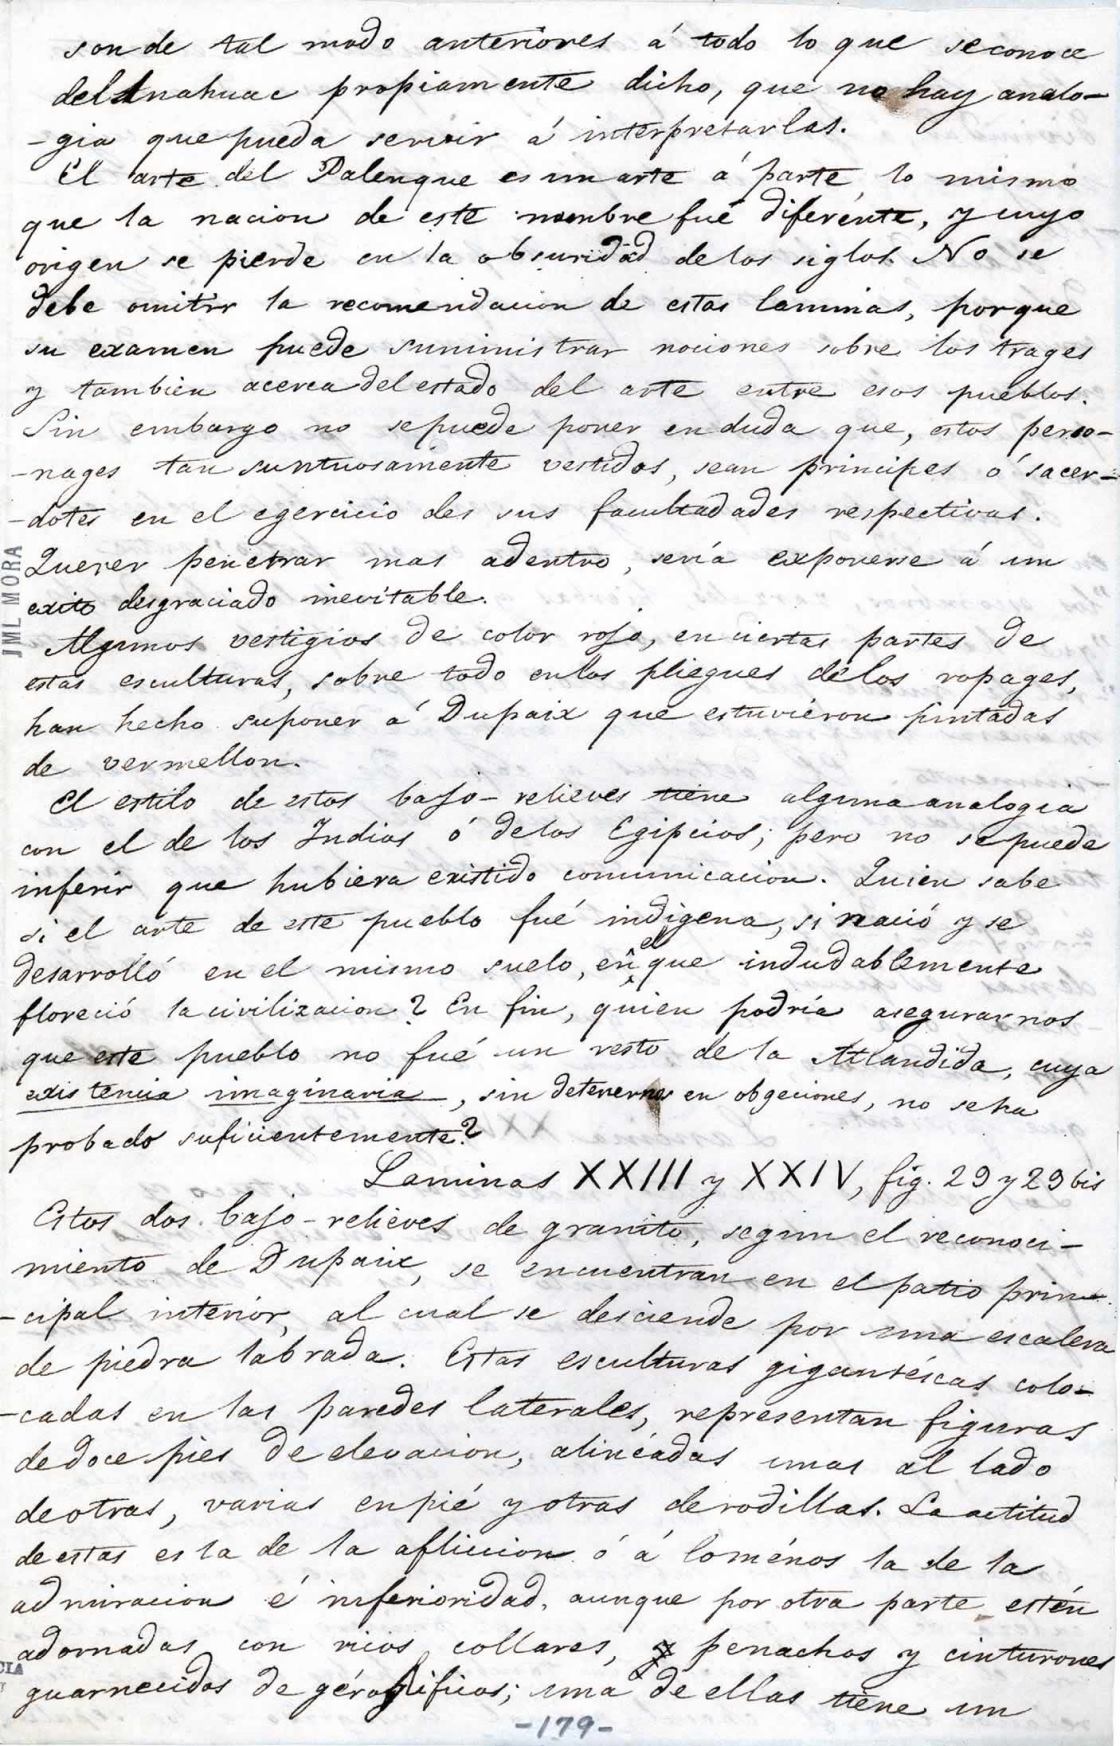 son de tal modo anteriores á todo lo que se conoce
del Anahuac propiamente dicho, que no hay analo-
-gia que pueda servir á interpretarlas.
El arte del Palenque es un arte á parte lo mismo
que la nacion de este nombre fué diferente, y cuyo
origen se pierde en la obsuridad de los siglos. No se
debe omitir la recomendacion de estas laminas, porque
su examen puede suministrar nociones sobre los trages
y tambien acerca del estado del arte entre esos pueblos.
Sin embargo no se puede poner en duda que, estos perso-
-nages tan suntuosamente vestidos, sean principes ó sacer-
-dotes en el egercicio des sus facultadades respectivas.
Querer penetrar mas adentro, sería exponerse á un
exito desgraciado inevitable.
JML MORA
Algunos vestigios de color rojo, en ciertas partes de
estas esculturas, sobre todo en los pliegues de los ropages,
han hecho suponer á Dupaix que estuvieron pintadas
de vermellon.
El estilo de estos bajo-relieves tiene alguna analogia
con el de los Indios ó de los Egipcios; pero no se puede
inferir que hubiera existido comunicacion. Quien sabe
si el arte de este pueblo fué indigena, si nació y se
desarrolló en el mismo suelo, en el que indudablemente
floreció la civilizacion? En fin, quien podría asegurarnos
que este pueblo no fué un resto de la Atlandida, cuya
existencia imaginaria, sin detenernos en obgeciones, no se ha
probado suficientemente?
Laminas XXIII y XXIV, fig. 29 y 29 bis
Estos dos bajo-relieves de granito, segun el reconoci-
miento de Dupaix, se encuentran en el patio prin-
-cipal interior, al cual se desciende por una escalera
de piedra labrada. Estas esculturas gigantéscas colo-
-cadas en las paredes laterales, representan figuras
de doce pies de elevacion, alinéadas unas al lado
de otras, varias en pié y otras de rodillas. La actitud
de estas es la de la afliccion ó á lo ménos la de la
admiracion é inferioridad, aunque por otra parte estén
adornadas con ricos collares, penachos y cinturones
guarnecidos de géroglificos; una de ellas tiene un
-179-